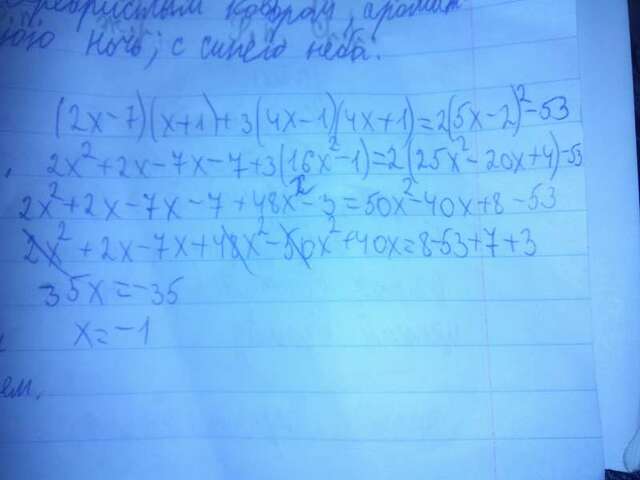 ковром, аромат
ночь; с синего неба.
(2x-7)(x+1)+3(4x-1)(4x+1)=2(5x-2)²-53
2x²+2x-7x-7+3(16x²-1)=2(25x²-20x+4)-53
2x²+2x-7x-7+48x²-3=50x²-40x+8-53
2x²+2x-7x+48x²-50x²+40x=8-53+7+3
35x=-35
x=-1
ем.